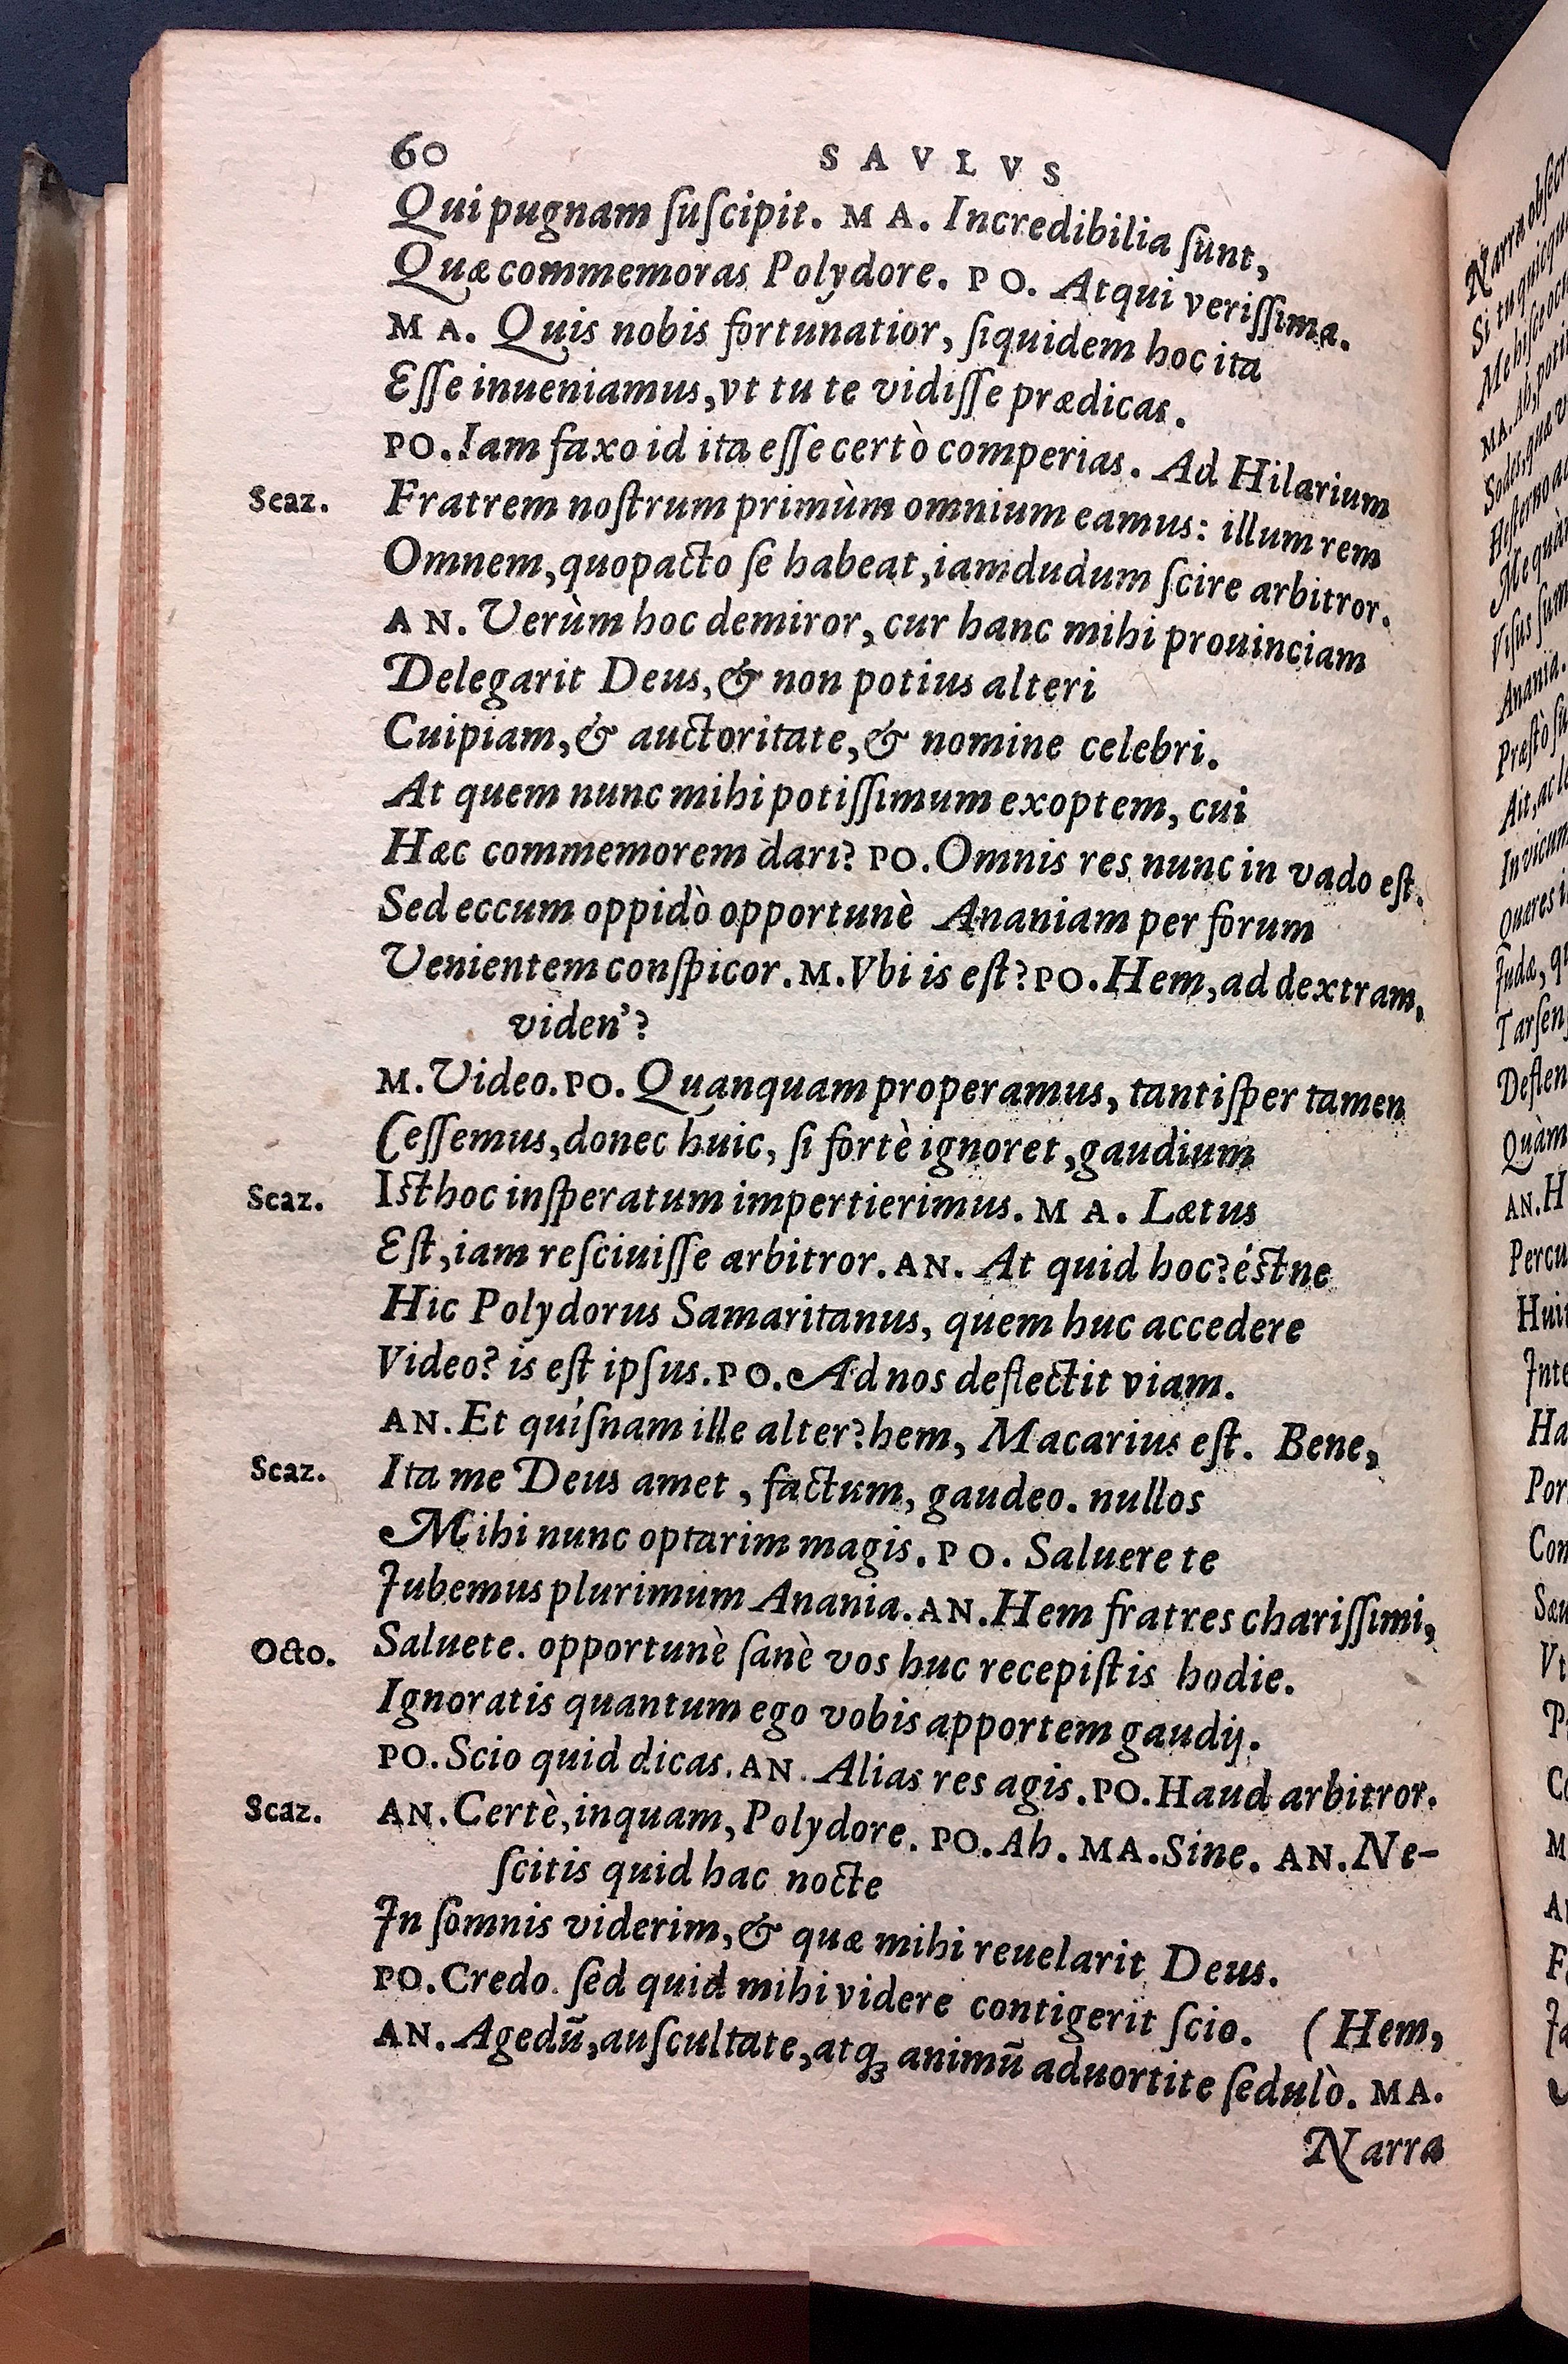 60 SAVLVS
Qui pugnam ſuſcipit. MA. Incredibilia ſunt,
Quæ commemoras Polydore. PO. Atqui veriſſima.
MA. Quis nobis fortunatior, ſiquidem hoc ita
Eſſe inueniamus, vt tu te vidiſſe prædicas.
PO. Iam faxo id ita eſſe certò comperias. Ad Hilarium
Scaz. Fratrem noſtrum primùm omnium eamus: illum rem
Omnem, quo pacto ſe habeat, iamdudum ſcire arbitror.
AN. Verùm hoc demiror, cur hanc mihi prouinciam
Delegarit Deus, & non potius alteri
Cuipiam, & auctoritate, & nomine celebri.
At quem nunc mihi potiſſimum exoptem, cui
Hæc commemorem dari? PO. Omnis res nunc in vado eſt.
Sed eccum oppidò opportunè Ananiam per forum
Venientem conſpicor. M. Vbi is eſt? PO. Hem, ad dextram,
viden'?
M. Video. PO. Quanquam properamus, tantiſper tamen
Ceſſemus, donec huic, ſi fortè ignoret, gaudium
Scaz. Iſthoc inſperatum impertierimus. MA. Lætus
Eſt, iam reſciuiſſe arbitror. AN. At quid hoc? éſtne
Hic Polydorus Samaritanus, quem huc accedere
Video? is eſt ipſus. PO. Ad nos deflectit viam.
AN. Et quíſnam ille alter? hem, Macarius eſt. Bene,
Scaz. Ita me Deus amet, factum, gaudeo. nullos
Mihi nunc optarim magis. PO. Saluere te
Jubemus plurimùm Anania. AN. Hem fratres chariſſimi,
Octo. Saluete. opportunè ſanè vos huc recepiſtis hodie.
Ignoratis quantum ego vobis apportem gaudij.
PO. Scio quid dicas. AN. Alias res agis. PO. Haud arbitror.
Scaz. AN. Certè, inquam, Polydore. PO. Ah. MA. Sine. AN. Ne-
ſcitis quid hac nocte
In ſomnis viderim, & quæ mihi reuelarit Deus.
PO. Credo. ſed quid mihi videre contigerit ſcio. (Hem,
AN. Agedũ, auſcultate, atq; animũ aduortite ſedulò. MA.
Narra